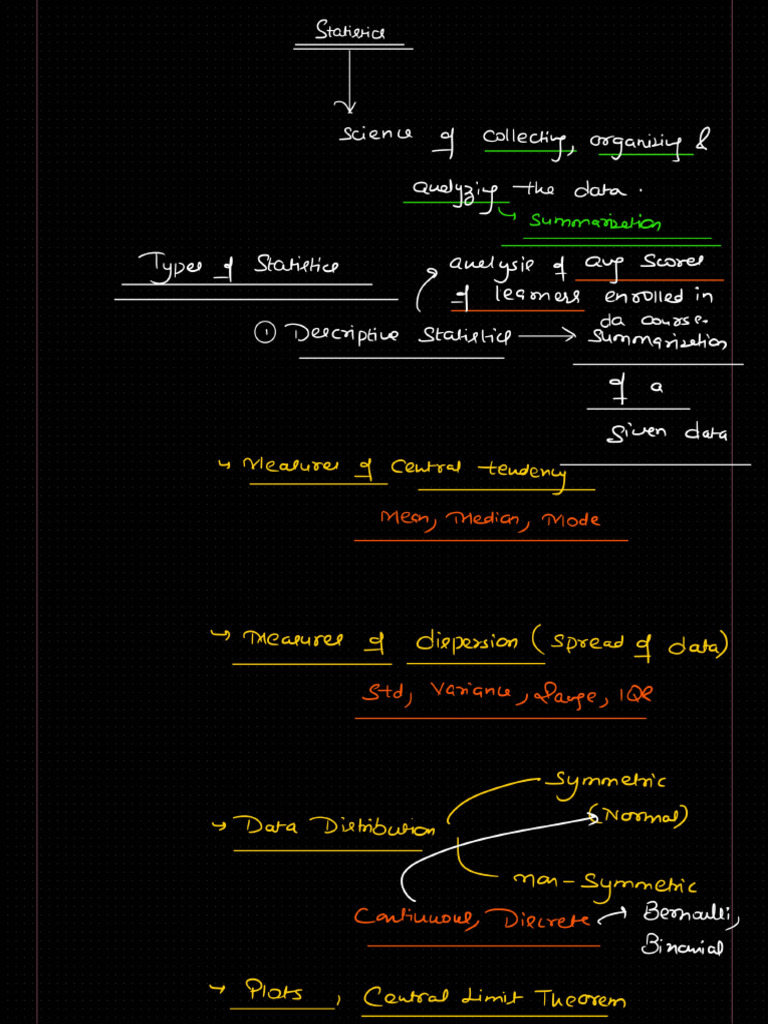 Statistics
Science of collecting, organizing &
analyzing the data.
Summarization
Types of Statistics
analysis of avg scores
of learners enrolled in
da course.
① Descriptive Statistics → Summarization
of a
Given data
↳ Measures of Central tendency
Mean, Median, Mode
↳ Measures of dispersion (Spread of data)
Std, Variance, Range, IQR
Symmetric
(Normal)
↳ Data Distribution
non-Symmetric
Continuous, Discrete → Bernoulli,
Binomial
↳ Plots, Central Limit Theorem